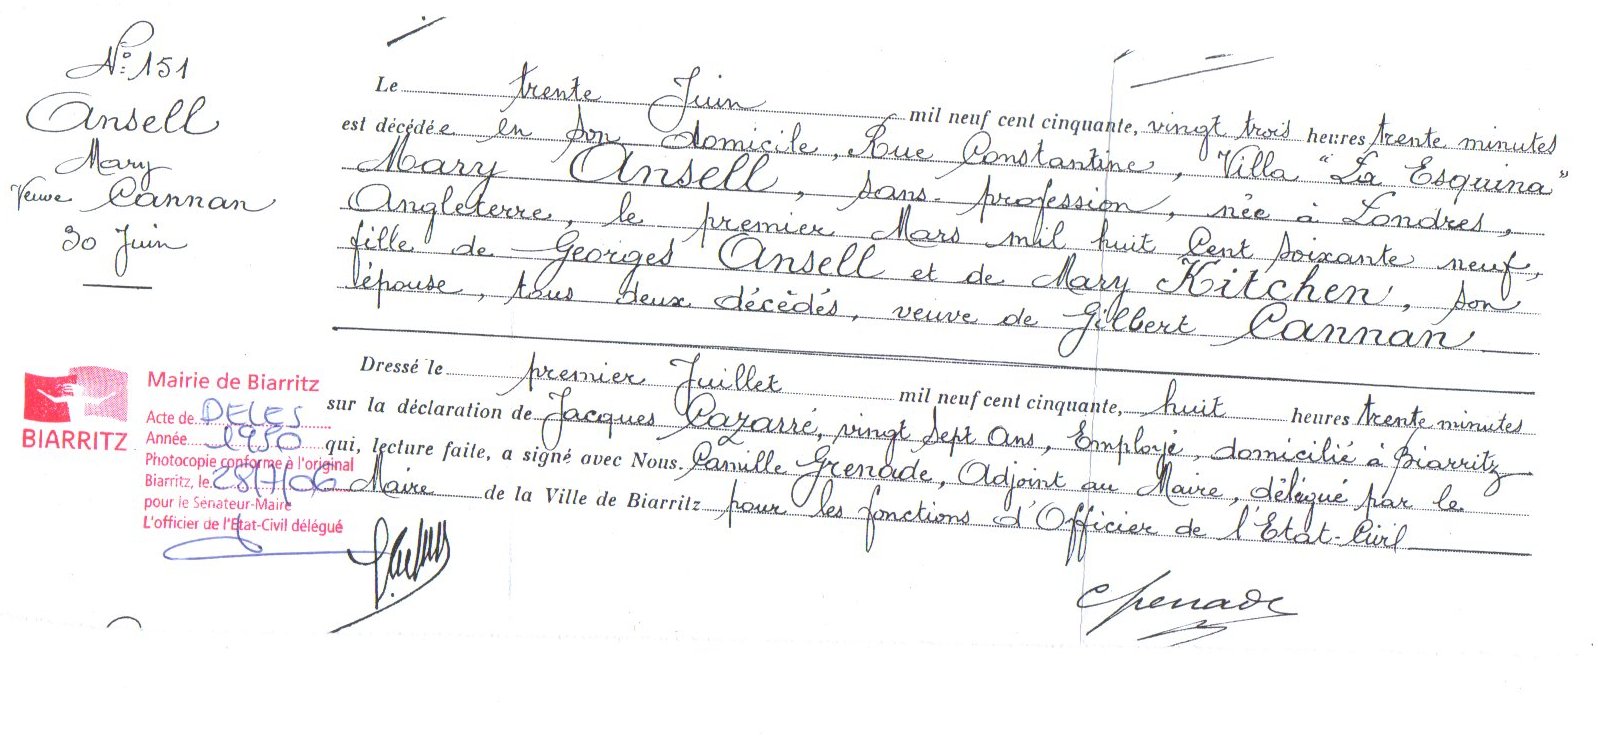 N°: 151
Ansell
Mary
Veuve Cannan
30 Juin
Le trente Juin mil neuf cent cinquante, vingt trois heures trente minutes
est décédée en son domicile, Rue Constantine, Villa "La Esquina"
Mary Ansell, sans profession, née à Londres,
Angleterre, le premier Mars mil huit Cent soixante neuf,
fille de Georges Ansell et de Mary Kitchen, son
épouse, tous deux décédés, veuve de Gilbert Cannan
Dressé le premier Juillet mil neuf cent cinquante, huit heures trente minutes
sur la déclaration de Jacques Cazarré, vingt Sept Ans, Employé, domicilié à Biarritz
qui, lecture faite, a signé avec Nous. Camille Grenade, Adjoint au Maire, délégué par le
Maire de la Ville de Biarritz pour les fonctions d'Officier de l'Etat-Civil
BIARRITZ
Mairie de Biarritz
Acte de DECES
Année 1950
Photocopie conforme à l'original
Biarritz, le 28/7/06
pour le Sénateur-Maire
L'officier de l'Etat-Civil délégué
CGrenade